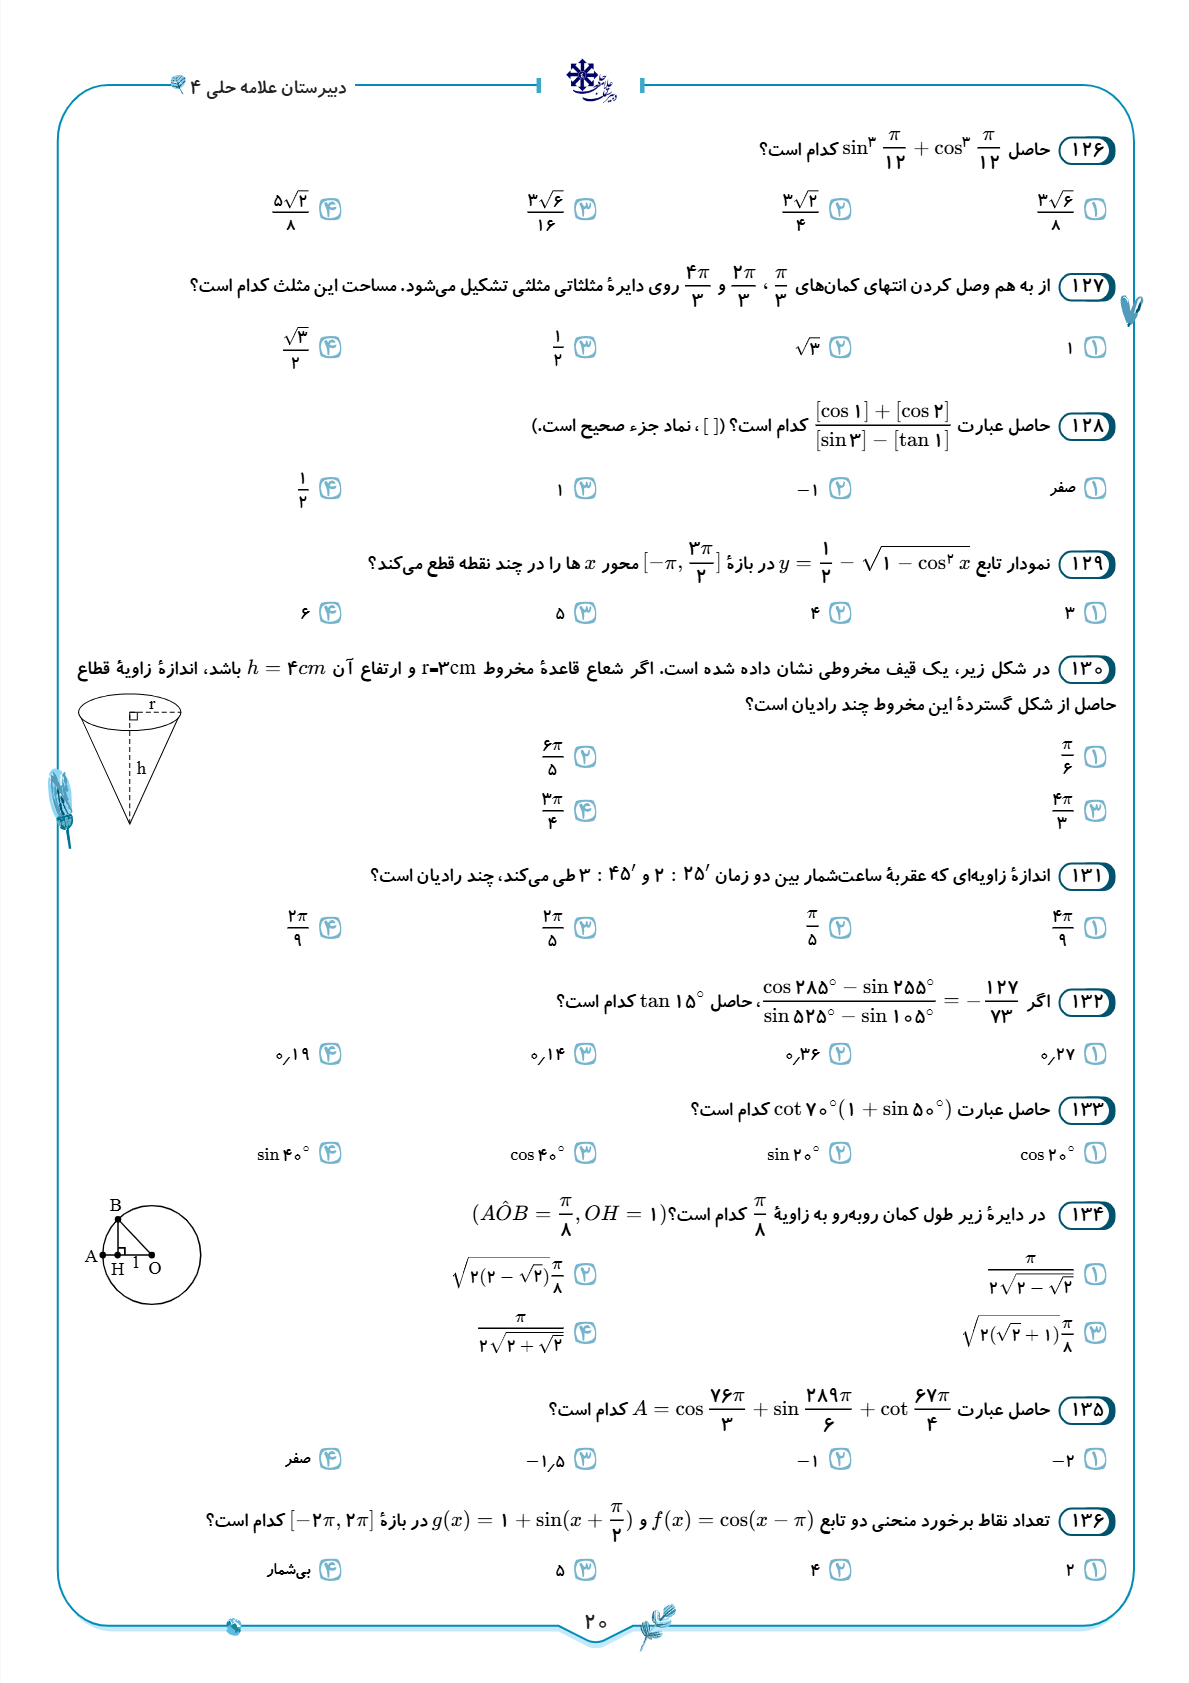 دبیرستان علامه حلی ۴
۱۲۶ حاصل sin³ π/۱۲ + cos³ π/۱۲ کدام است؟
۱) ۳√۶/۸ ۲) ۳√۲/۴ ۳) ۳√۶/۱۶ ۴) ۵√۲/۸
۱۲۷ از به هم وصل کردن انتهای کمان‌های π/۳ ، ۲π/۳ و ۴π/۳ روی دایرهٔ مثلثاتی مثلثی تشکیل می‌شود. مساحت این مثلث کدام است؟
۱) ۱ ۲) √۳ ۳) ۱/۲ ۴) √۳/۲
۱۲۸ حاصل عبارت ([cos ۱] + [cos ۲])/([sin ۳] − [tan ۱]) کدام است؟ ([ ] ، نماد جزء صحیح است.)
۱) صفر ۲) −۱ ۳) ۱ ۴) ۱/۲
۱۲۹ نمودار تابع y = ۱/۲ − √(۱ − cos² x) در بازهٔ [−π, ۳π/۲] محور x ها را در چند نقطه قطع می‌کند؟
۱) ۳ ۲) ۴ ۳) ۵ ۴) ۶
۱۳۰ در شکل زیر، یک قیف مخروطی نشان داده شده است. اگر شعاع قاعدهٔ مخروط r=۳cm و ارتفاع آن h = ۴cm باشد، اندازهٔ زاویهٔ قطاع
حاصل از شکل گستردهٔ این مخروط چند رادیان است؟
r
h
۱) π/۶ ۲) ۶π/۵
۳) ۴π/۳ ۴) ۳π/۴
۱۳۱ اندازهٔ زاویه‌ای که عقربهٔ ساعت‌شمار بین دو زمان ۲ : ۲۵′ و ۳ : ۴۵′ طی می‌کند، چند رادیان است؟
۱) ۴π/۹ ۲) π/۵ ۳) ۲π/۵ ۴) ۲π/۹
۱۳۲ اگر (cos ۲۸۵° − sin ۲۵۵°)/(sin ۵۲۵° − sin ۱۰۵°) = −۱۲۷/۷۳، حاصل tan ۱۵° کدام است؟
۱) ۰٫۲۷ ۲) ۰٫۳۶ ۳) ۰٫۱۴ ۴) ۰٫۱۹
۱۳۳ حاصل عبارت cot ۷۰°(۱ + sin ۵۰°) کدام است؟
۱) cos ۲۰° ۲) sin ۲۰° ۳) cos ۴۰° ۴) sin ۴۰°
۱۳۴ در دایرهٔ زیر طول کمان روبه‌رو به زاویهٔ π/۸ کدام است؟(AÔB = π/۸, OH = ۱)
B
A H 1 O
۱) π/(۲√(۲ − √۲)) ۲) √(۲(۲ − √۲)) π/۸
۳) √(۲(√۲ + ۱)) π/۸ ۴) π/(۲√(۲ + √۲))
۱۳۵ حاصل عبارت A = cos ۷۶π/۳ + sin ۲۸۹π/۶ + cot ۶۷π/۴ کدام است؟
۱) −۲ ۲) −۱ ۳) −۱٫۵ ۴) صفر
۱۳۶ تعداد نقاط برخورد منحنی دو تابع f(x) = cos(x − π) و g(x) = ۱ + sin(x + π/۲) در بازهٔ [−۲π, ۲π] کدام است؟
۱) ۲ ۲) ۴ ۳) ۵ ۴) بی‌شمار
۲۰